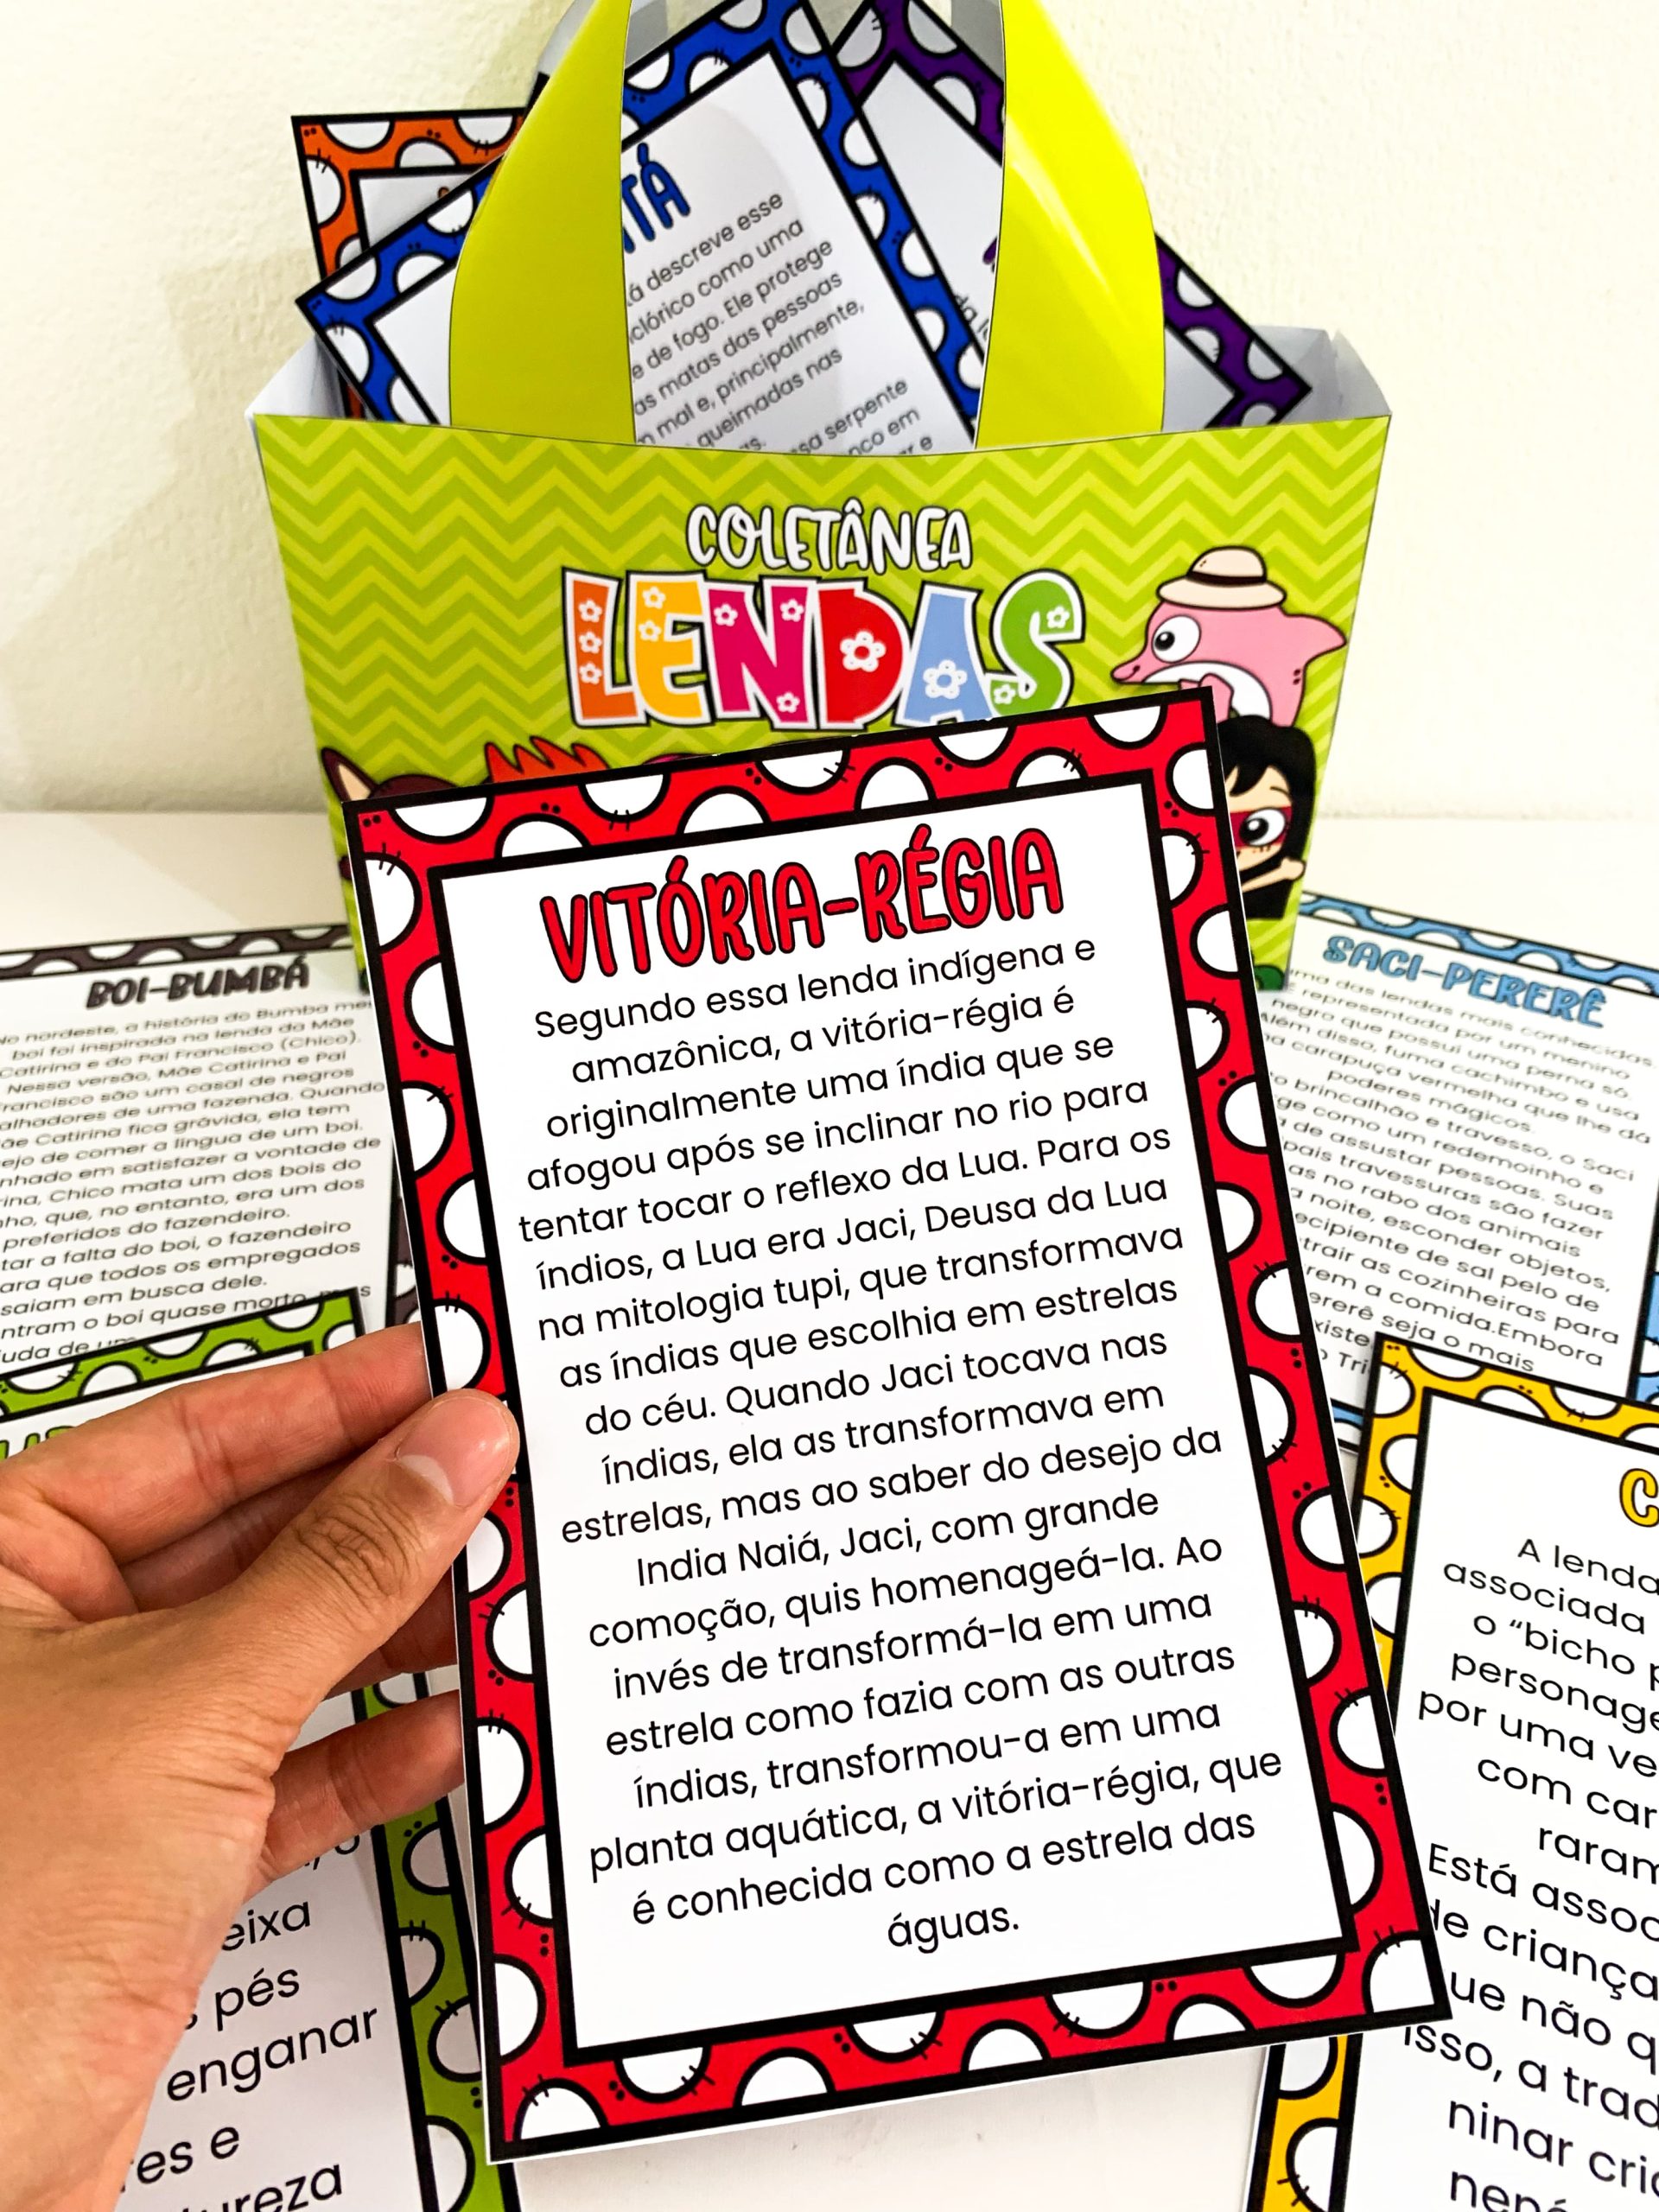 TÁ
á descreve esse
clórico como uma
de fogo. Ele protege
as matas das pessoas
mal e, principalmente,
queimadas nas
serpente
em
e
COLETÂNEA
LENDAS
VITÓRIA-RÉGIA
Segundo essa lenda indígena e
amazônica, a vitória-régia é
originalmente uma índia que se
afogou após se inclinar no rio para
tentar tocar o reflexo da Lua. Para os
índios, a Lua era Jaci, Deusa da Lua
na mitologia tupi, que transformava
as índias que escolhia em estrelas
do céu. Quando Jaci tocava nas
índias, ela as transformava em
estrelas, mas ao saber do desejo da
India Naiá, Jaci, com grande
comoção, quis homenageá-la. Ao
invés de transformá-la em uma
estrela como fazia com as outras
índias, transformou-a em uma
planta aquática, a vitória-régia, que
é conhecida como a estrela das
águas.
BOI-BUMBÁ
nordeste, a história do Bumba meu
boi foi inspirada na lenda da Mãe
Catirina e do Pai Francisco (Chico).
Nessa versão, Mãe Catirina e Pai
rancisco são um casal de negros
alhadores de uma fazenda. Quando
ãe Catirina fica grávida, ela tem
ejo de comer a língua de um boi.
nhado em satisfazer a vontade de
rina, Chico mata um dos bois do
ho, que, no entanto, era um dos
preferidos do fazendeiro.
tar a falta do boi, o fazendeiro
ara que todos os empregados
saiam em busca dele.
ntram o boi quase morto
uda de
SACI-PERERÊ
ma das lendas mais conhecidas
representada por um menino
negro que possui uma perna só.
Além disso, fuma cachimbo e usa
a carapuça vermelha que lhe dá
poderes mágicos.
brincalhão e travesso, o Saci
ge como um redemoinho e
de assustar pessoas. Suas
pais travessuras são fazer
as no rabo dos animais
noite, esconder objetos,
ecipiente de sal pelo de
trair as cozinheiras para
rem a comida.Embora
ererê seja o mais
xiste
Tri
eixa
pés
enganar
res e
ureza
C
A lenda
associada
o "bicho p
personage
por uma ve
com car
raram
Está assoc
de criança
ue não q
isso, a trad
ninar cria
nen